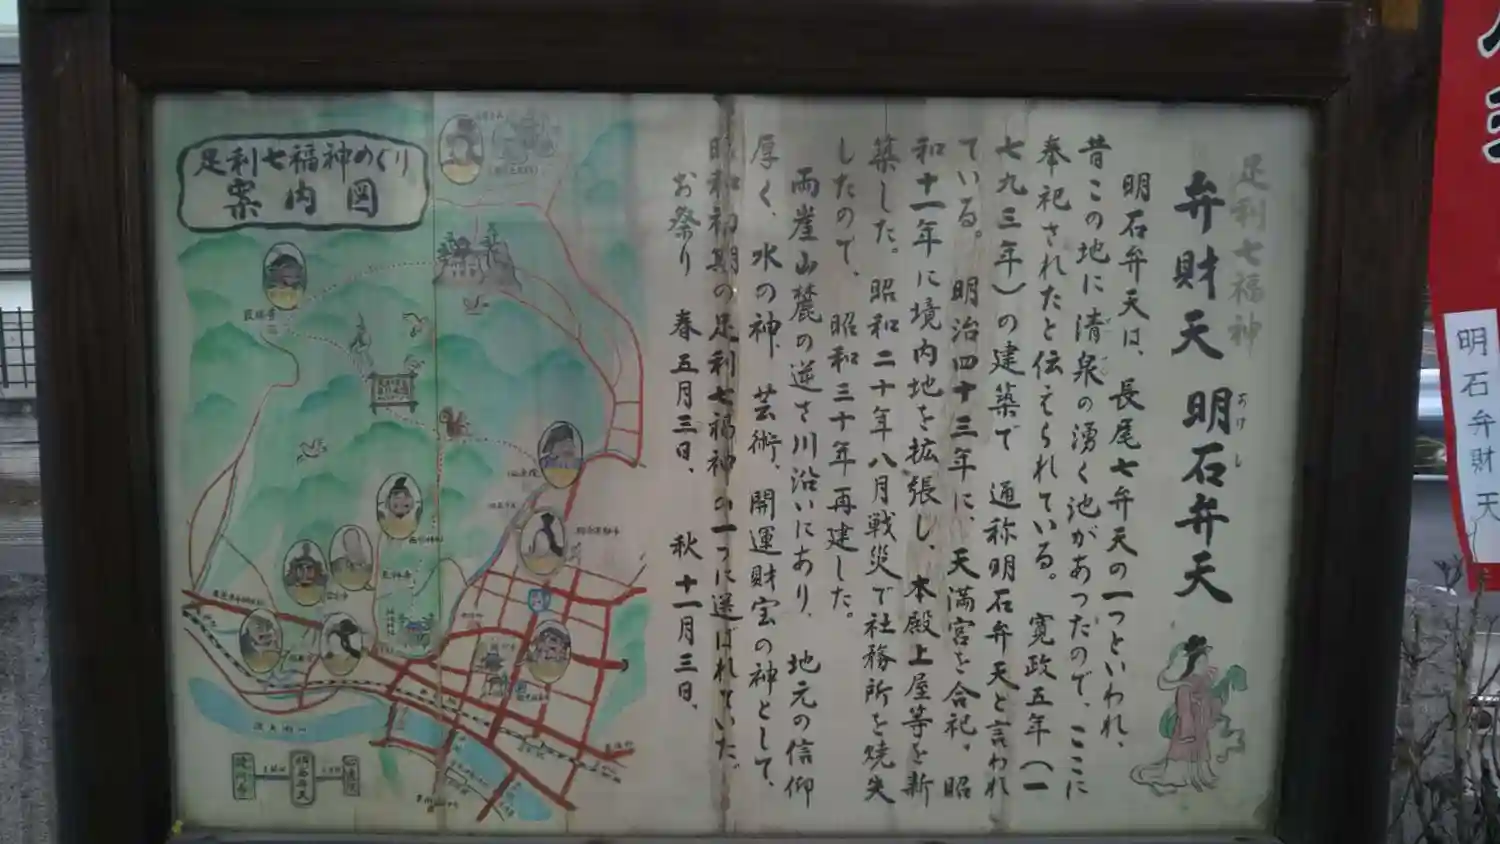 足利七福神
弁財天 明石弁天
あけし
明石弁天は、長尾七弁天の一つといわれ、
昔この地に清泉の湧く池があったので、ここに
奉祀されたと伝えられている。寛政五年(一
七九三年)の建築で 通称明石弁天と言われ
ている。明治四十三年に、天満宮を合祀。昭
和十一年に境内地を拡張し、本殿上屋等を新
築した。昭和二十年八月戦災で社務所を焼失
したので、昭和三十年再建した。
両崖山麓の逆さ川沿いにあり、地元の信仰
厚く、水の神、芸術、開運財宝の神として、
昭和初期の足利七福神の一つに選ばれていた。
お祭り 春五月三日、 秋十一月三日、
足利七福神めぐり
案内図
渡良瀬川
明石弁財天